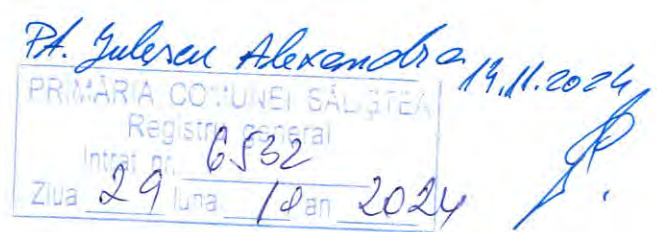 Pt. Julescu Alexandra 14.11.2024
PRIMĂRIA COMUNEI SĂLIȘTEA
Registru general
Intrat nr. 6532
Ziua 29 luna 10 an 2024